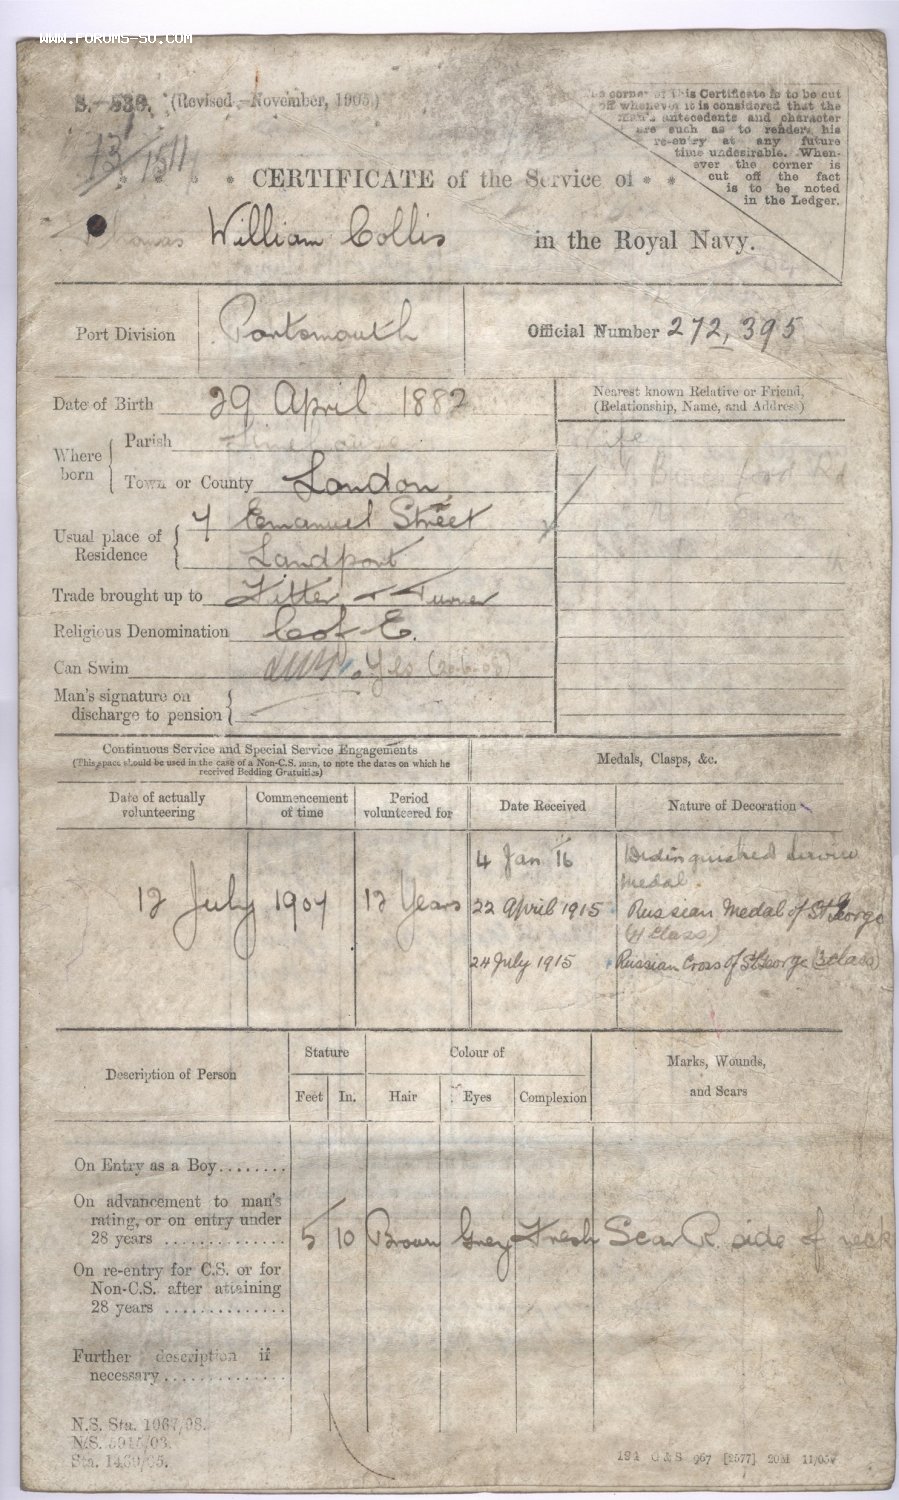 WWW.FOROMS-SU.COM
S.-536. (Revised.-November, 1905.)
13/1511
corner of this Certificate is to be cut
off whenever it is considered that the
man's antecedents and character
are such as to render his
re-entry at any future
time undesirable. When-
ever the corner is
cut off the fact
is to be noted
in the Ledger.
CERTIFICATE of the Service of
Thomas William Collis in the Royal Navy.
Port Division Portsmouth Official Number 272,395
Date of Birth 29 April 1882
Nearest known Relative or Friend,
(Relationship, Name, and Address)
Where born
Parish Limehouse
Wife
Town or County London
Usual place of Residence
7 Emanuel Street
Landport
Trade brought up to Fitter & Turner
Religious Denomination C of E.
Can Swim Yes (20-6-08)
Man's signature on
discharge to pension
Continuous Service and Special Service Engagements
(This space should be used in the case of a Non-C.S. man, to note the dates on which he
received Bedding Gratuities)
Medals, Clasps, &c.
Date of actually volunteering
Commencement of time
Period volunteered for
Date Received
Nature of Decoration
4 Jan 16 Distinguished Service Medal.
12 July 1907 12 Years
22 April 1915 Russian Medal of St George
(4 Class)
24 July 1915 Russian Cross of St George (3 class)
Description of Person
Stature
Colour of
Marks, Wounds,
and Scars
Feet In. Hair Eyes Complexion
On Entry as a Boy........
On advancement to man's
rating, or on entry under
28 years ............. 5 10 Brown Grey Fresh Scar R. side of neck
On re-entry for C.S. or for
Non-C.S. after attaining
28 years .............
Further description if
necessary.............
N.S. Sta. 1067/08.
N/S.
Sta.
194 G & S 967 [2577] 20M 11/05